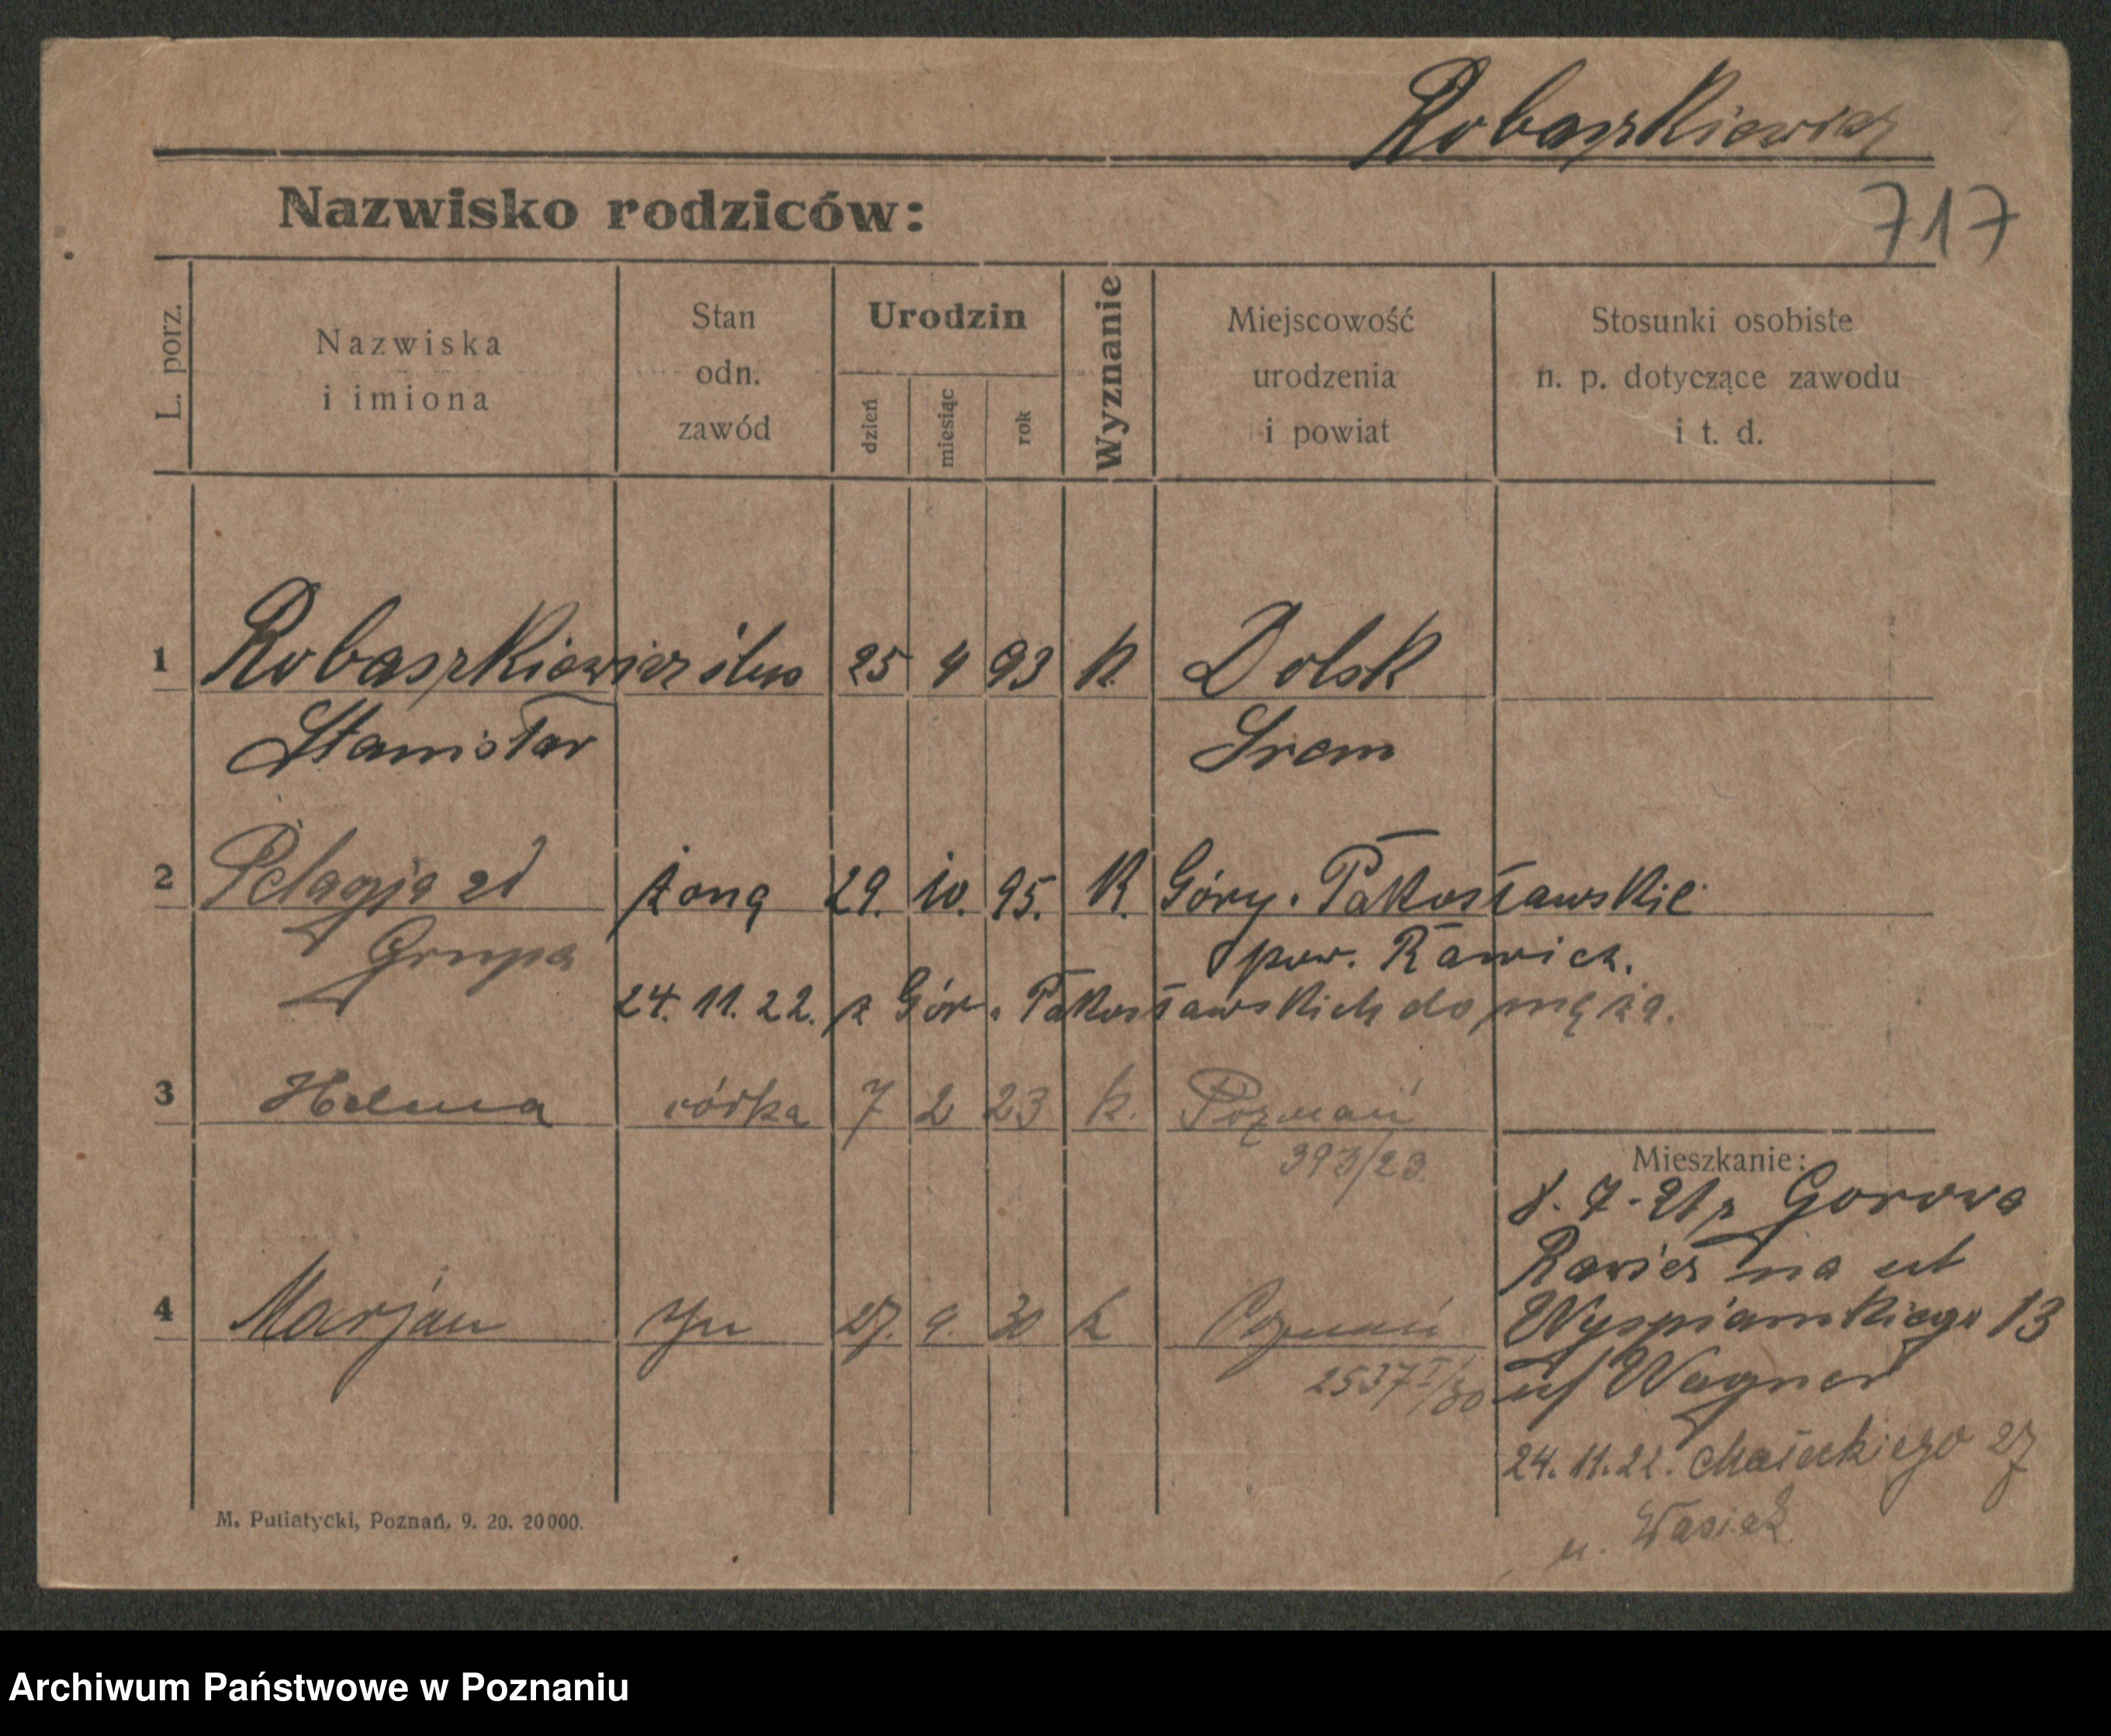 Robaszkiewicz
Nazwisko rodziców:
717
L. porz.
Nazwiska
i imiona
Stan
odn.
zawód
Urodzin
dzień
miesiąc
rok
Wyznanie
Miejscowość
urodzenia
i powiat
Stosunki osobiste
n. p. dotyczące zawodu
i t. d.
1 Robaszkiewicz ślus 25 4 93 K. Dolsk
Stanisław Srem
2 Pelagja zd żona 29. 10. 95. K. Góry. Pakosławskie
Grupa pow. Rawicz.
24. 11. 22. z Gór. Pakosławskich do męża.
3 Helena córka 7 2 23 k. Poznań
393/23.
Mieszkanie:
8. 7. 21 z Gorowa
Rawicz na ul
Wyspiańskiego 13
4 Marjan syn 27. 9. 30 k Poznań
2537 I/30 Wagner
24. 11. 22. Małeckiego 27
u. Wasiak
M. Putiatycki, Poznań. 9. 20. 20000.
Archiwum Państwowe w Poznaniu